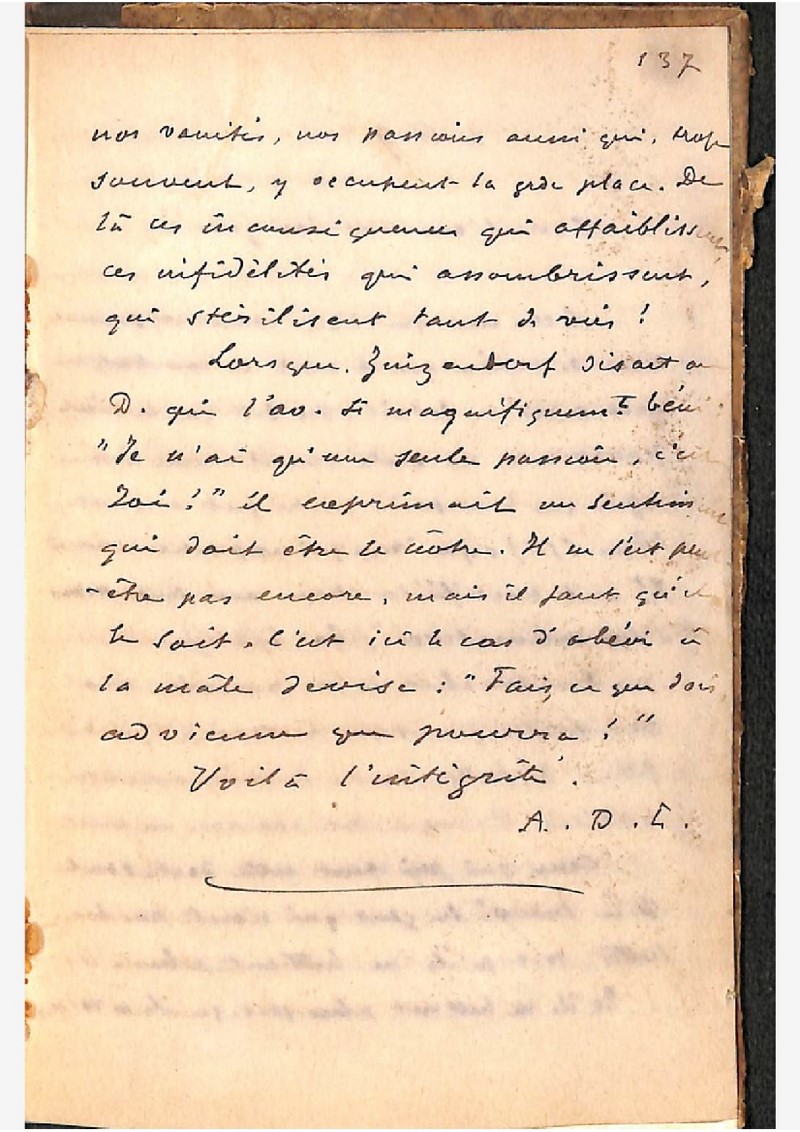 137
nos vanités, nos passions aussi qui, trop
souvent, y occupent la grde place. De
là ces inconséquences qui affaiblissent,
ces infidélités qui assombrissent,
qui stérilisent tant de vies !
Lorsque Zinzendorf disait à
D. qui l'av. si magnifiquemt béni :
"Je n'ai qu'une seule passion, c'est
Toi !" il exprimait un sentiment
qui doit être le nôtre. Il ne l'est peut
-être pas encore, mais il faut qu'il
le soit. C'est ici le cas d'obéir à
la mâle devise : "Fais ce que dois
advienne que pourra !"
Voilà l'intégrité.
A. D. L.